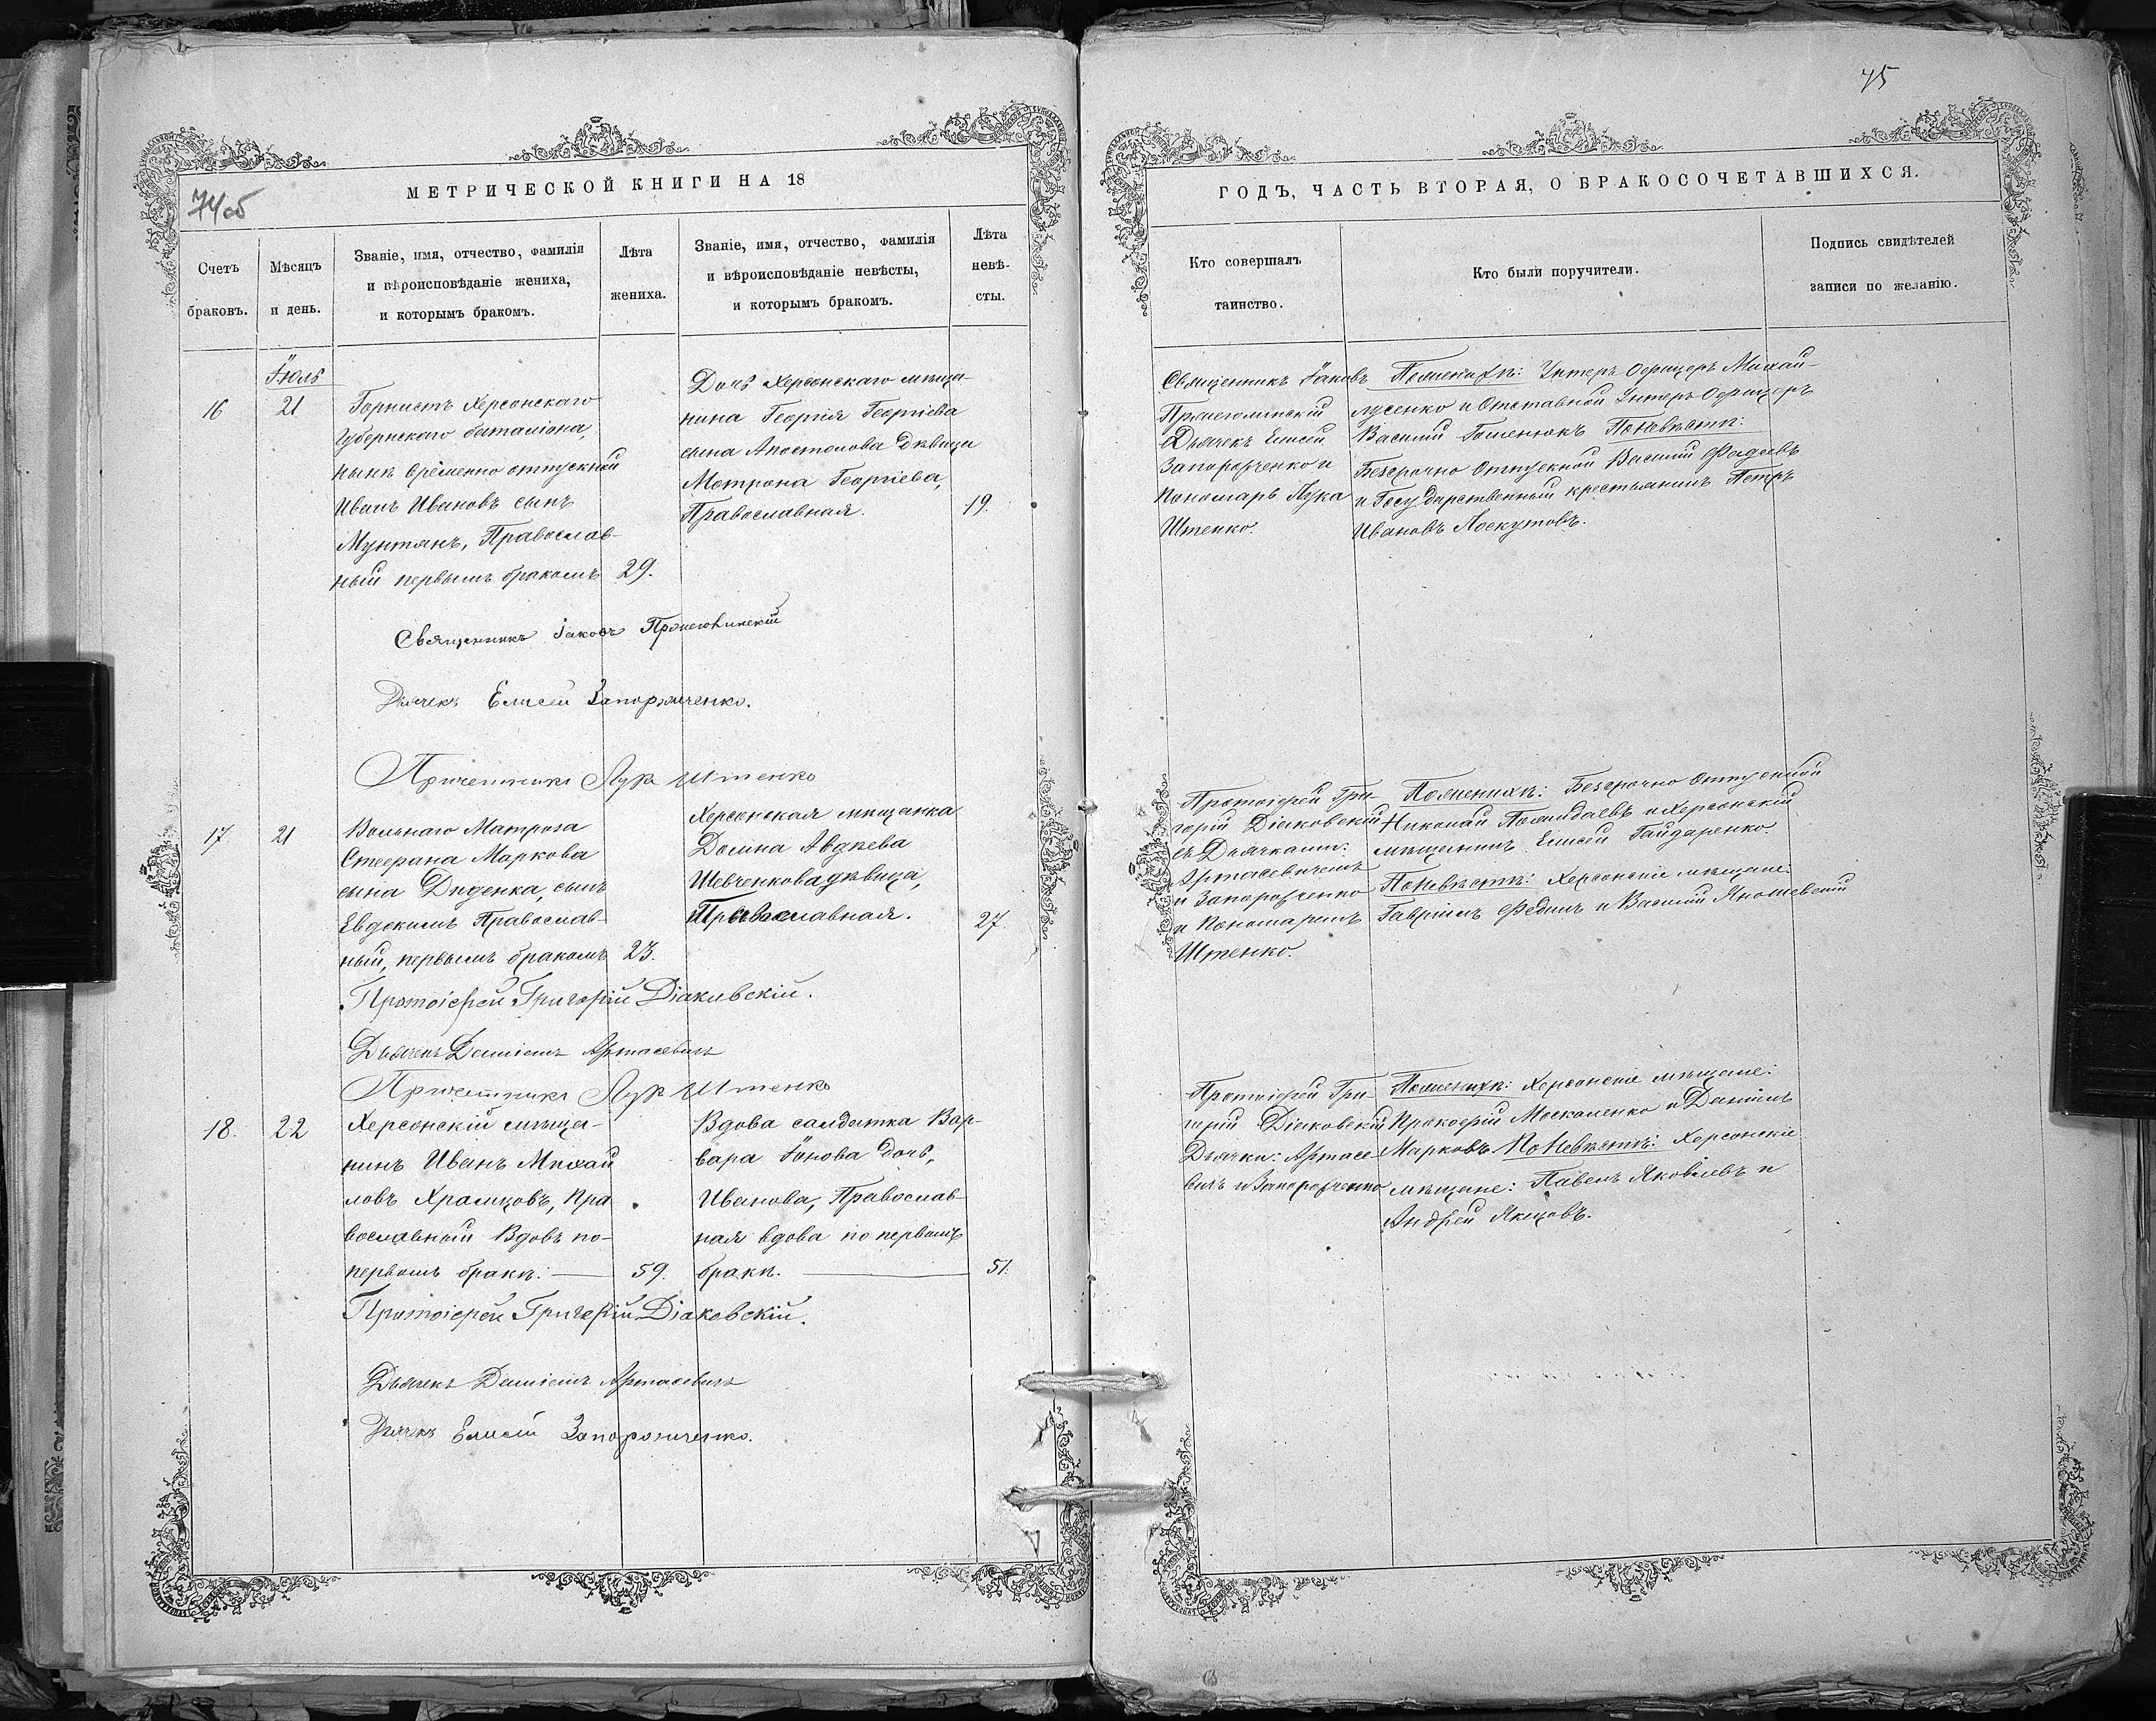 74об
МЕТРИЧЕСКОЙ КНИГИ НА 18
Счетъ
браковъ.
Мѣсяцъ
и день.
Званіе, имя, отчество, фамилія
и вѣроисповѣданіе жениха,
и которымъ бракомъ.
Лѣта
жениха.
Званіе, имя, отчество, фамилія
и вѣроисповѣданіе невѣсты,
и которымъ бракомъ.
Лѣта
невѣ-
сты.
Іюль
16
21
Горнистъ Херсонскаго
Губернскаго баталіона,
нынѣ временно отпускной
Иванъ Ивановъ сынъ
Мунтянъ, Православ-
ный первымъ бракомъ
29.
Дочь Херсонскаго мѣща-
нина Георгія Георгіева
сына Апостолова дѣвица
Мотрона Георгіева,
Православная.
19.
Священникъ Іаковъ
Дьячекъ Елисей Запорожченко.
Причетникъ Лука Штенко
17.
21
Вольнаго Матроза
Стефана Маркова
сына Диденка, сынъ
Евдокимъ Православ-
ный, первымъ бракомъ
23.
Херсонская мѣщанка
Домна Авдѣева
Шевченкова дѣвица,
Православная.
27.
Протоіерей Григорій Діаковскій.
Дьячекъ Даміанъ Артасевичъ
Причетникъ Лука Штенко
18.
22
Херсонскій мѣща-
нинъ Иванъ Михай
ловъ Храмцовъ, Пра-
вославный Вдовъ по-
первомъ бракѣ:
59.
Вдова салдатка Вар-
вара Іонова дочь,
Иванова, Православ-
ная вдова по первомъ
бракѣ.
51.
Протоіерей Григорій Діаковскій.
Дьячекъ Даміанъ Артасевичъ
Дьячекъ Елисей Запорожченко.
75
ГОДЪ, ЧАСТЬ ВТОРАЯ, О БРАКОСОЧЕТАВШИХСЯ.
Кто совершалъ
таинство.
Кто были поручители.
Подпись свидѣтелей
записи по желанію.
Священникъ Іаковъ
Дьячекъ Елисей
Запорожченко и
Пономарь Лука
Штенко.
По женихѣ: Унтеръ Офицеръ Михай-
лусенко и Отставной Унтеръ Офицеръ
Василій Гоменюкъ По невѣстѣ:
Безсрочно Отпускной Василій Фадѣевъ
и Государственный крестьянинъ Петръ
Ивановъ Лоскутовъ.
Протоіерей Гри-
горій Діаковскій
съ Дьячками:
Артасевичемъ
и Запорожченко
и Пономаремъ
Штенко.
По женихѣ: Безсрочно Отпускной
Николай и Херсонскій
мѣщанинъ Елисей Гайдаренко.
По невѣстѣ: Херсонскіе мѣщане:
Гавріилъ Фединъ и Василій Яношевскій
Протоіерей Гри-
горій Діаковскій
Дьячки: Артасе-
вичъ и Запорожченко
По женихѣ: Херсонскіе мѣщане:
Прокофій Москаленко и Даніилъ
Марковъ По невѣстѣ: Херсонскіе
мѣщане: Павелъ Яковлевъ и
Андрей Якцовъ.